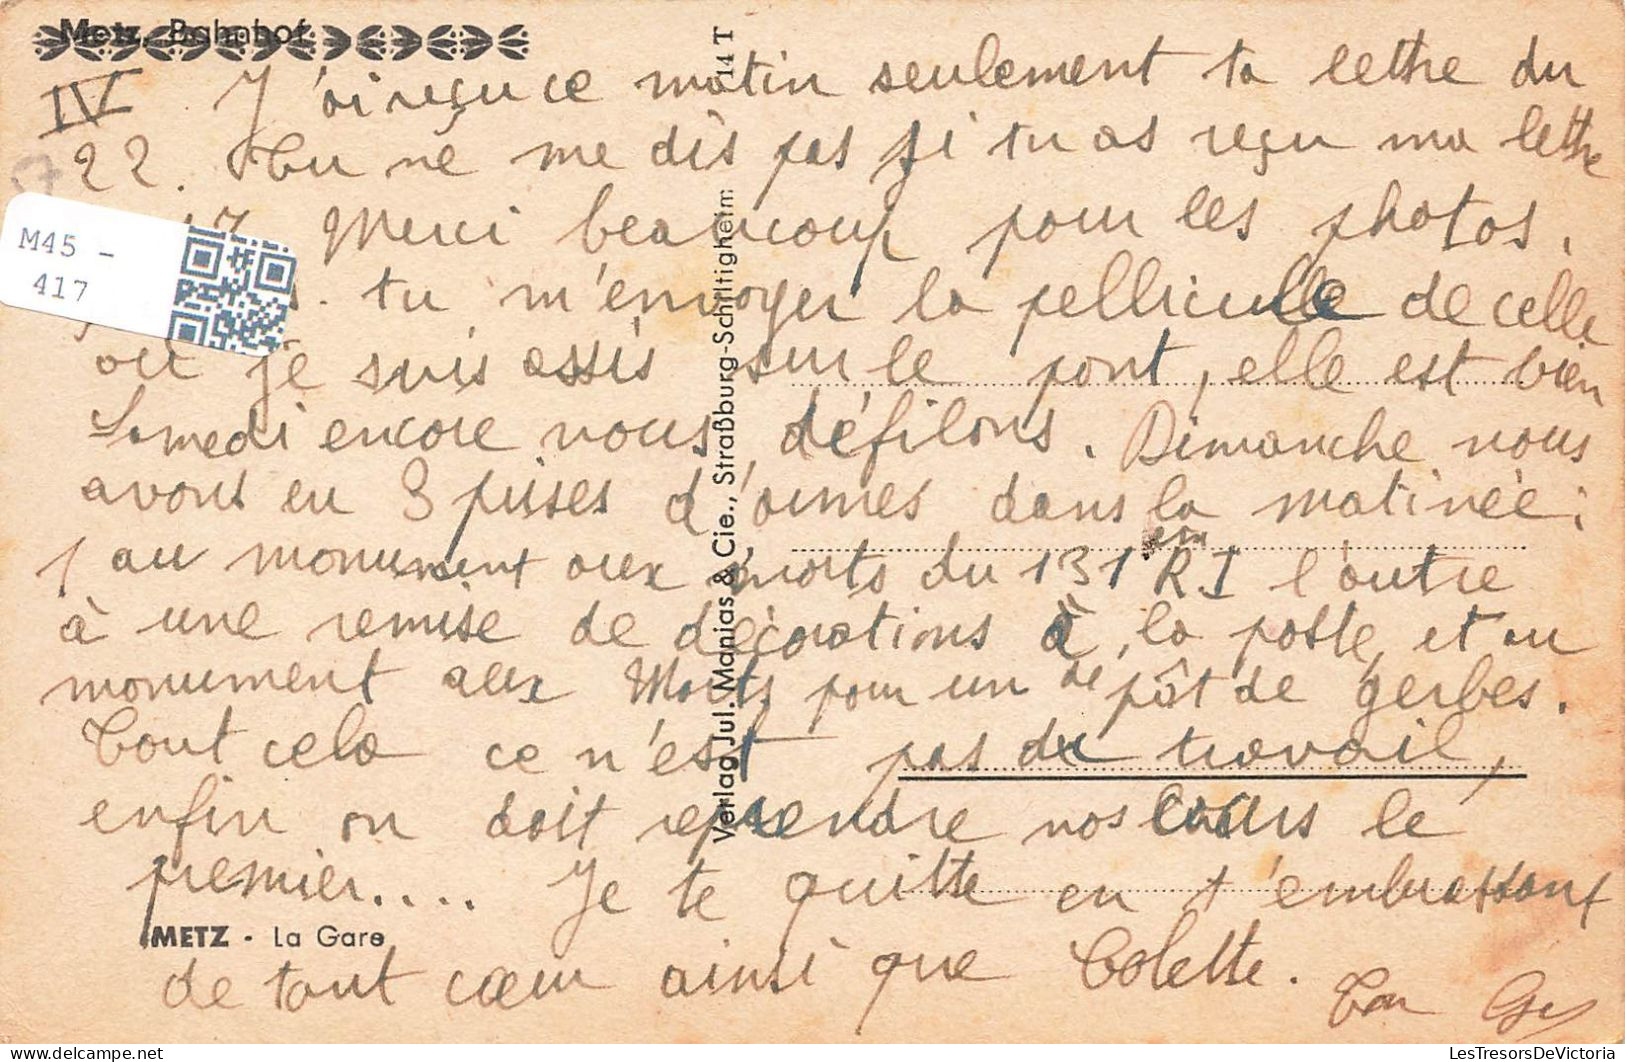 Metz, Bahnhof
IV J'ai reçu ce matin seulement ta lettre du
22. Tu ne me dis pas si tu as reçu ma lettre
Merci beaucoup pour les photos.
tu m'envoyer la pellicule de celle
où je suis assis sur le pont, elle est bien
Samedi encore nous défilons. Dimanche nous
avons eu 3 prises d'armes dans la matinée :
1 au monument aux morts du 131em R.I l'autre
à une remise de décorations à la poste, et au
monument aux Morts pour un dépôt de gerbes.
Tout cela ce n'est pas du travail,
enfin on doit reprendre nos cours le
premier.... Je te quitte en t'embrassant
de tout cœur ainsi que Colette. Ton Guy
METZ - La Gare
Verlag Jul. Manias & Cie., Straßburg-Schiltigheim 14 T
M45 -
417
LesTresorsDeVictoria